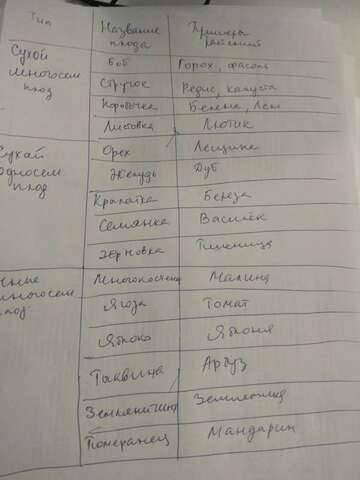 Тип Название плода Примеры растений
Сухой многосем плод Боб Горох, фасоль
Стручок Редис, капуста
Коробочка Белена, Лён
Листовка Лютик
Сухай односем плод Орех Лещина
Желудь Дуб
Крылатка Береза
Семянка Василёк
Зерновка Пшеница
чные многосем плод Многокостянк Малина
Ягода Томат
Яблоко Яблоня
Тыквина Арбуз
Земляничина Земляника
Померанец Мандарин